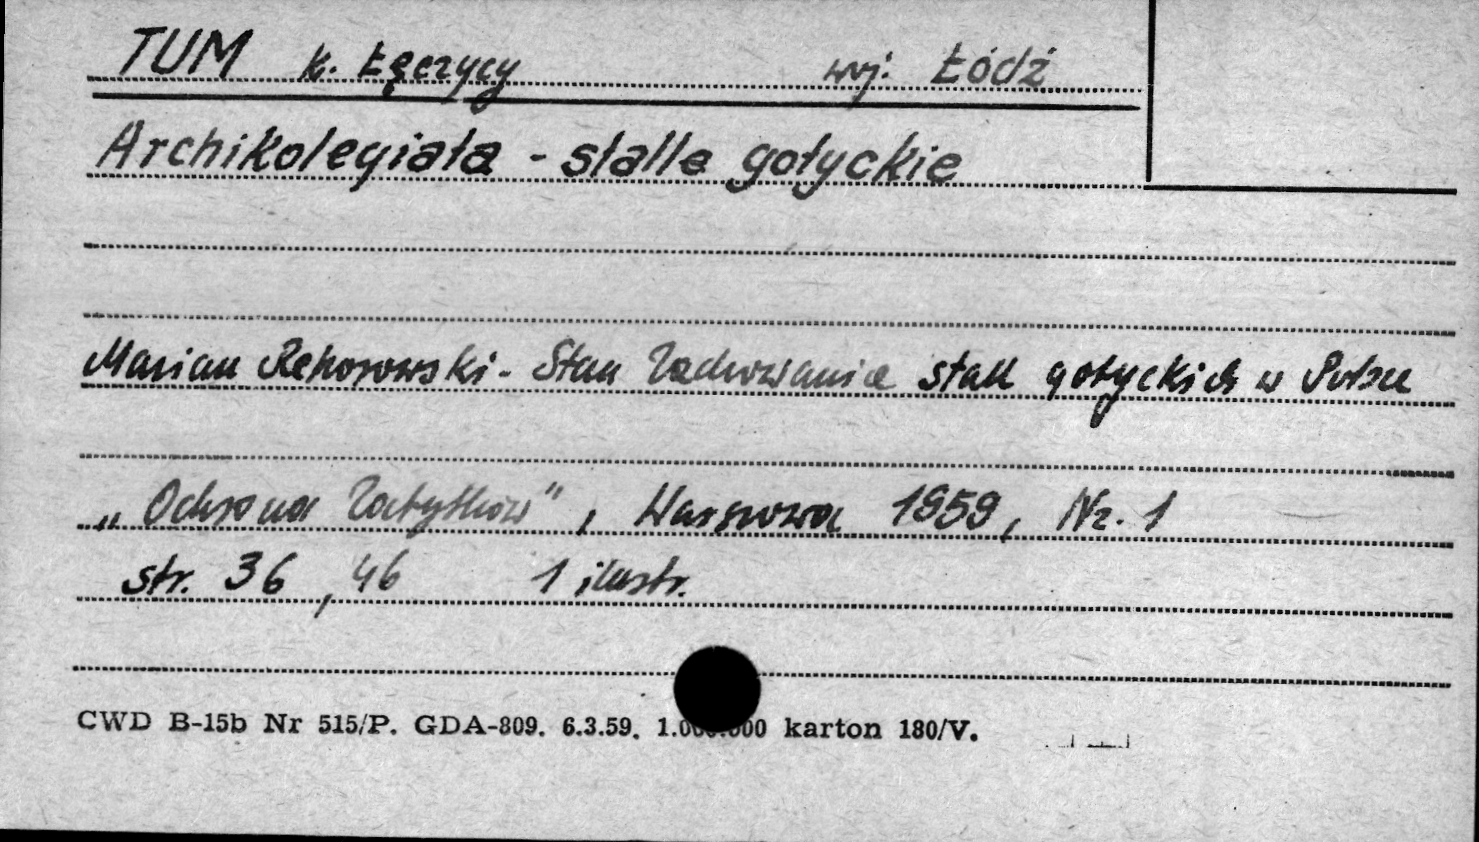 TUM k. Łęczycy woj. Łódź
Archikolegiata - stalle gotyckie
Marian Rehorowski - Stan Zachowania stall gotyckich w Polsce
„Ochrona Zabytków”, Warszawa 1959, Nr. 1
str. 36, 46 1 ilustr.
CWD B-15b Nr 515/P. GDA-809. 6.3.59. 1.000.000 karton 180/V.